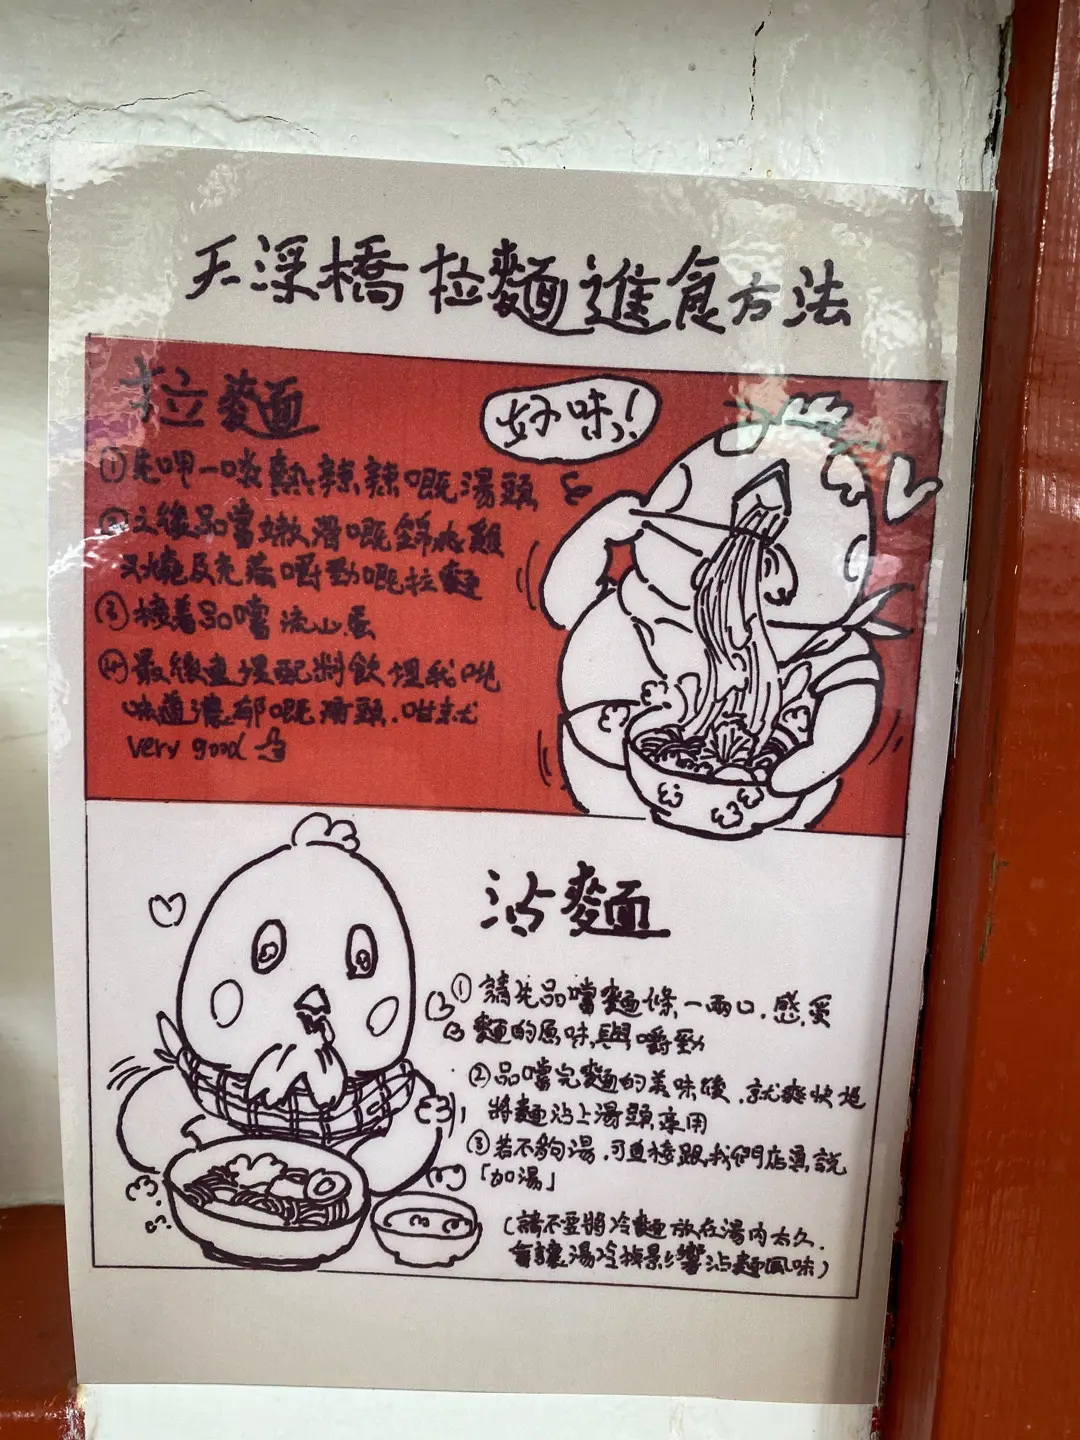 天深橋拉麵進食方法
拉麵
好味!
①先呷一啖熱辣辣嘅湯頭
②之後品嚐嫩滑嘅錦兆雞
叉燒及充滿嚼勁嘅拉麵
③接着品嚐流心蛋
④最後連埋配料飲埋我哋
味道濃郁嘅湯頭.咁就
very good
沾麵
①請先品嚐麵條一兩口,感受
麵的原味與嚼勁
②品嚐完麵的美味後,就爽快地
將麵沾上湯頭享用
③若不夠湯,可直接跟我們店員說
「加湯」
(請不要將冷麵放在湯內太久,
會讓湯冷掉影響沾麵風味)